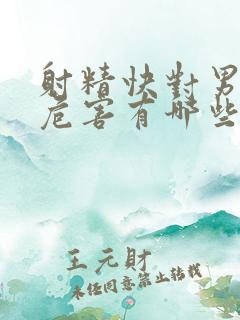 射精快對男
危害有哪些
王元財
未经同意禁止转载